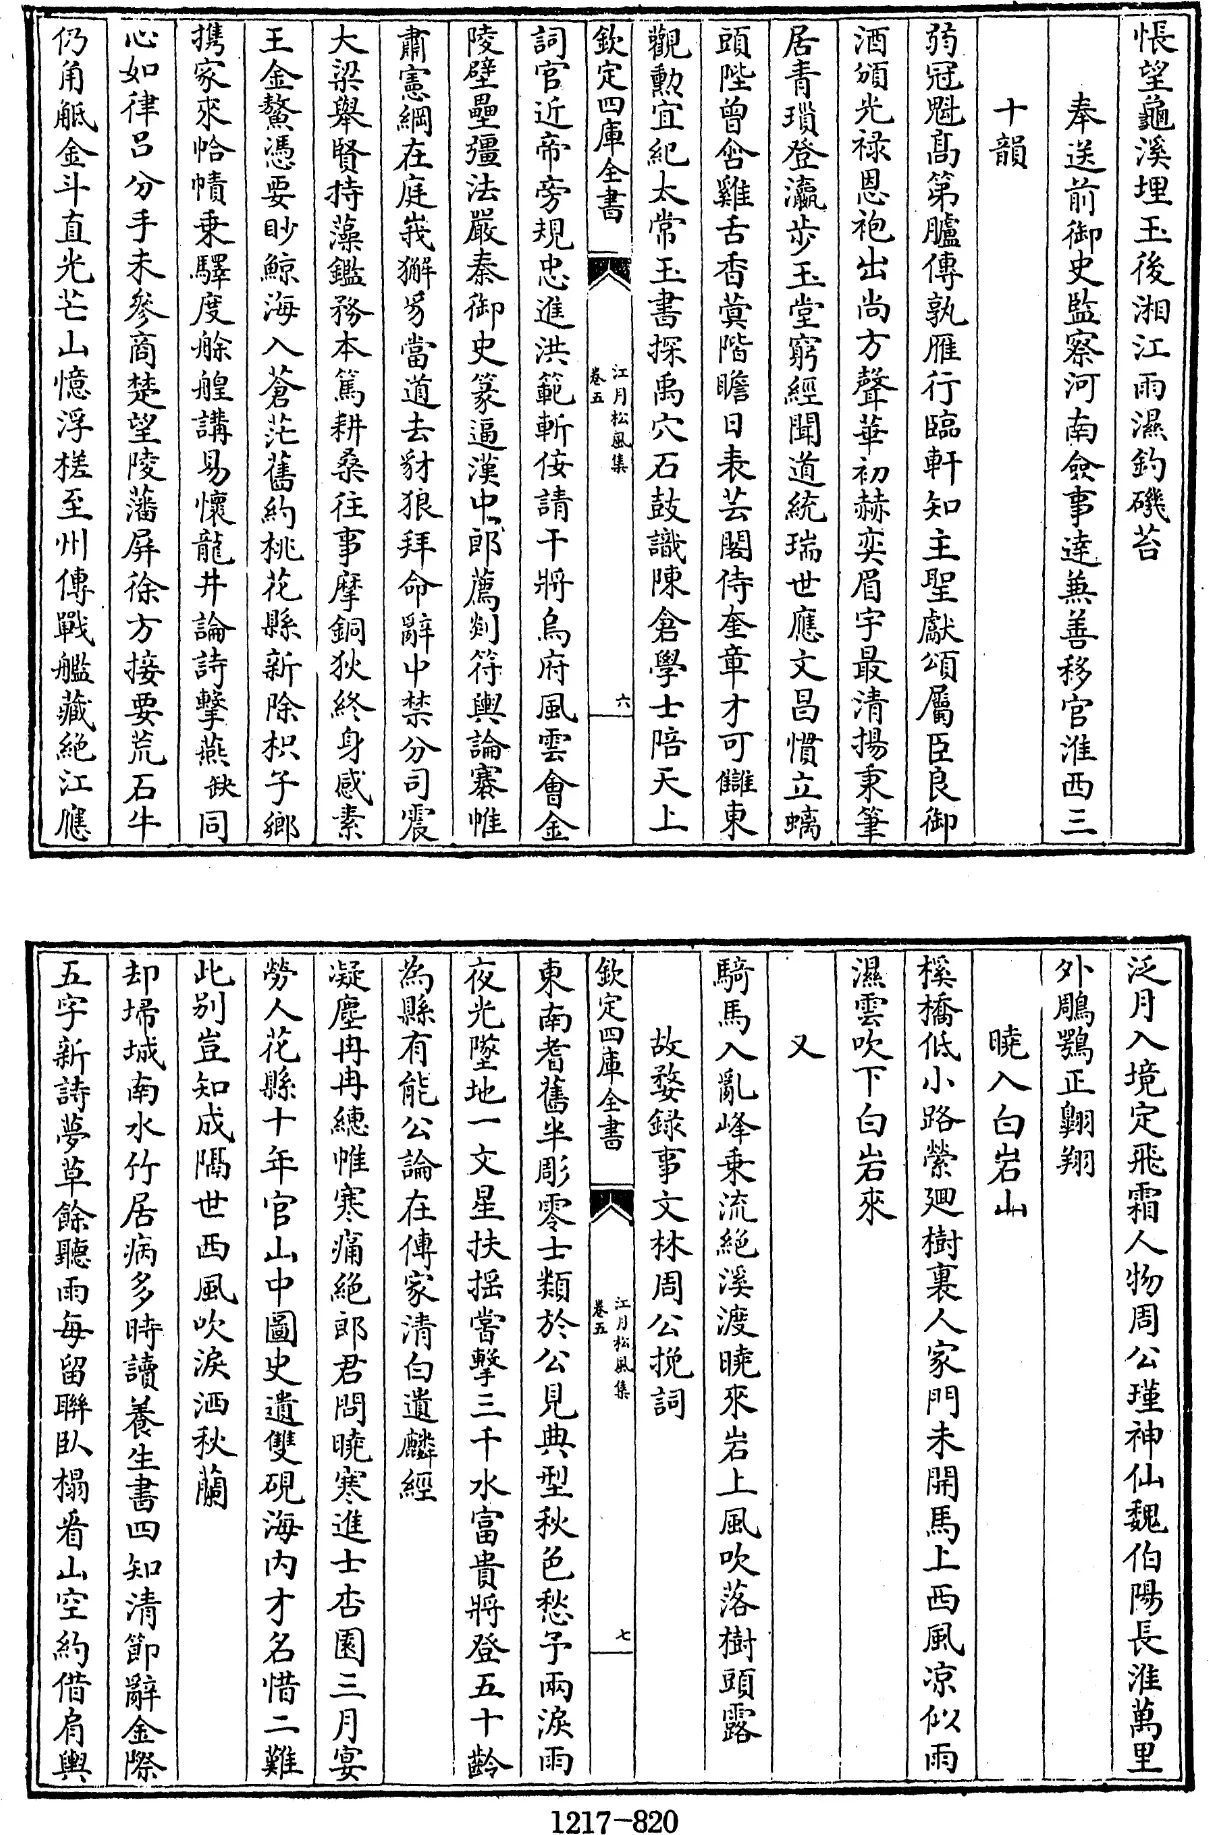 悵望龜溪埋玉後湘江雨濕釣磯苔
奉送前御史監察河南僉事達兼善移官淮西三
十韻
弱冠魁髙第臚傳孰雁行臨軒知主聖獻頌屬臣良御
酒頒光禄恩袍出尚方聲華初赫奕眉宇最清揚秉筆
居青瑣登瀛步玉堂窮經聞道統瑞世應文昌慣立螭
頭陛曾含雞舌香蓂階瞻日表芸閣侍奎章才可讎東
觀勲宜紀太常玉書探禹穴石鼓識陳倉學士陪天上
欽定四庫全書
江月松風集
卷五
六
詞官近帝旁規忠進洪範斬佞請干將烏府風雲會金
陵壁壘彊法嚴秦御史篆逼漢中郎薦剡符輿論褰帷
肅憲綱在庭峩獬豸當道去豺狼拜命辭中禁分司震
大梁舉賢持藻鑑務本篤耕桑往事摩銅狄終身感素
王金鰲憑要眇鯨海入蒼茫舊約桃花縣新除枳子鄉
携家來帢幘乗驛度艅艎講易懐龍井論詩擊燕缺同
心如律吕分手未參商楚望陵藩屏徐方接要荒石牛
仍角觝金斗直光芒山憶浮槎至州傳戰艦藏絶江應
泛月入境定飛霜人物周公瑾神仙魏伯陽長淮萬里
外鵰鶚正翺翔
曉入白岩山
槎橋低小路縈廻樹裏人家門未開馬上西風凉似雨
濕雲吹下白岩來
又
騎馬入亂峰乗流絶溪渡曉來岩上風吹落樹頭露
故婺録事文林周公挽詞
欽定四庫全書
江月松風集
卷五
七
東南耆舊半彫零士類於公見典型秋色愁予兩淚雨
夜光墜地一文星扶揺當擊三千水富貴將登五十齡
為縣有能公論在傳家清白遺麟經
凝塵冉冉總帷寒痛絶郎君問曉寒進士杏園三月宴
勞人花縣十年官山中圖史遺雙硯海内才名惜二難
此别豈知成隔世西風吹淚洒秋蘭
却埽城南水竹居病多時讀養生書四知清節辭金際
五字新詩夢草餘聽雨每留聯臥榻看山空約借肩輿
1217-820